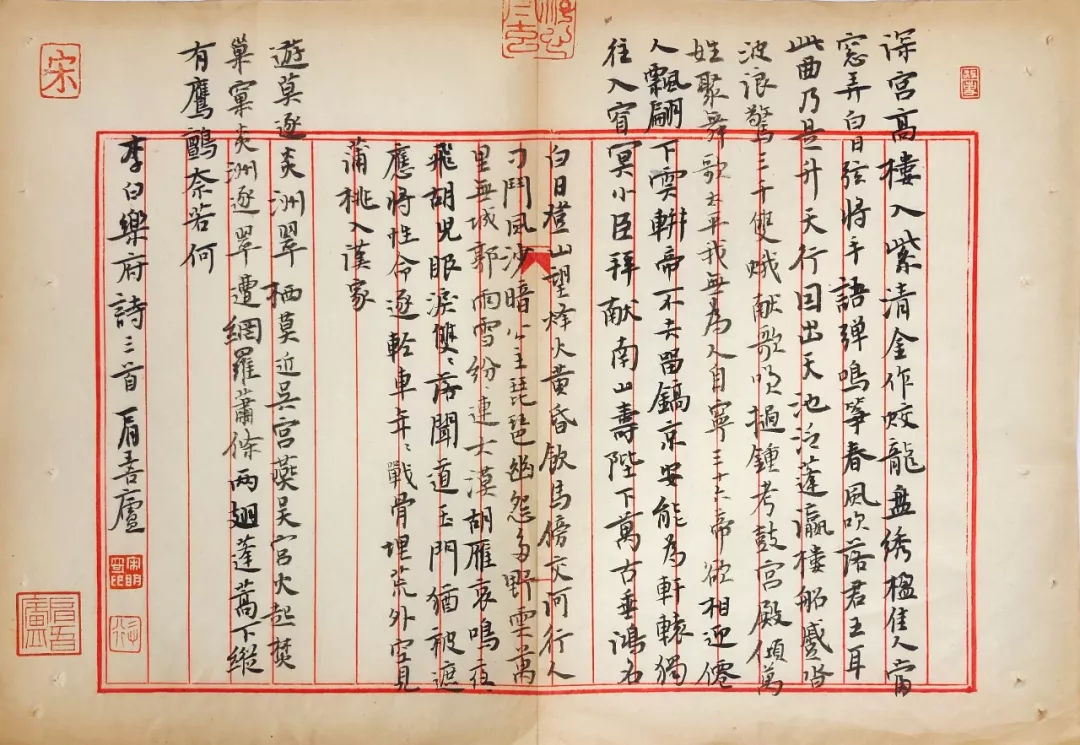 深宮高樓入紫清金作蛟龍盘绣楹佳人當
窓弄白日弦將手語弹鳴筝春風吹落君王耳
此曲乃是升天行因出天池泛蓬瀛樓船蹙沓
波浪驚三千雙蛾献歌咲撾鍾考鼓宮殿傾萬
姓聚舞歌太平我無為人自寧三十六帝欲相迎僊
人飄翩下雲軿帝不去留鎬京安能為軒轅獨
往入窅冥小臣拜献南山壽陛下萬古垂鴻名
白日登山望烽火黃昏飲馬傍交河行人
刁鬥風沙暗公主琵琶幽怨多野雲萬
里無城郭雨雪紛連大漠胡雁哀鳴夜
飛胡兒眼淚雙〻落聞道玉門猶被遮
應將性命逐軽車年〻戰骨埋荒外空見
蒲桃入漢家
遊莫逐炎洲翠栖莫近吳宮燕吳宮火起焚
巢窠炎洲逐翠遭網羅蕭條两翅蓬蒿下縱
有鷹鸇奈若何
李白樂府詩三首 肩吾廬
宋
肩吾廬